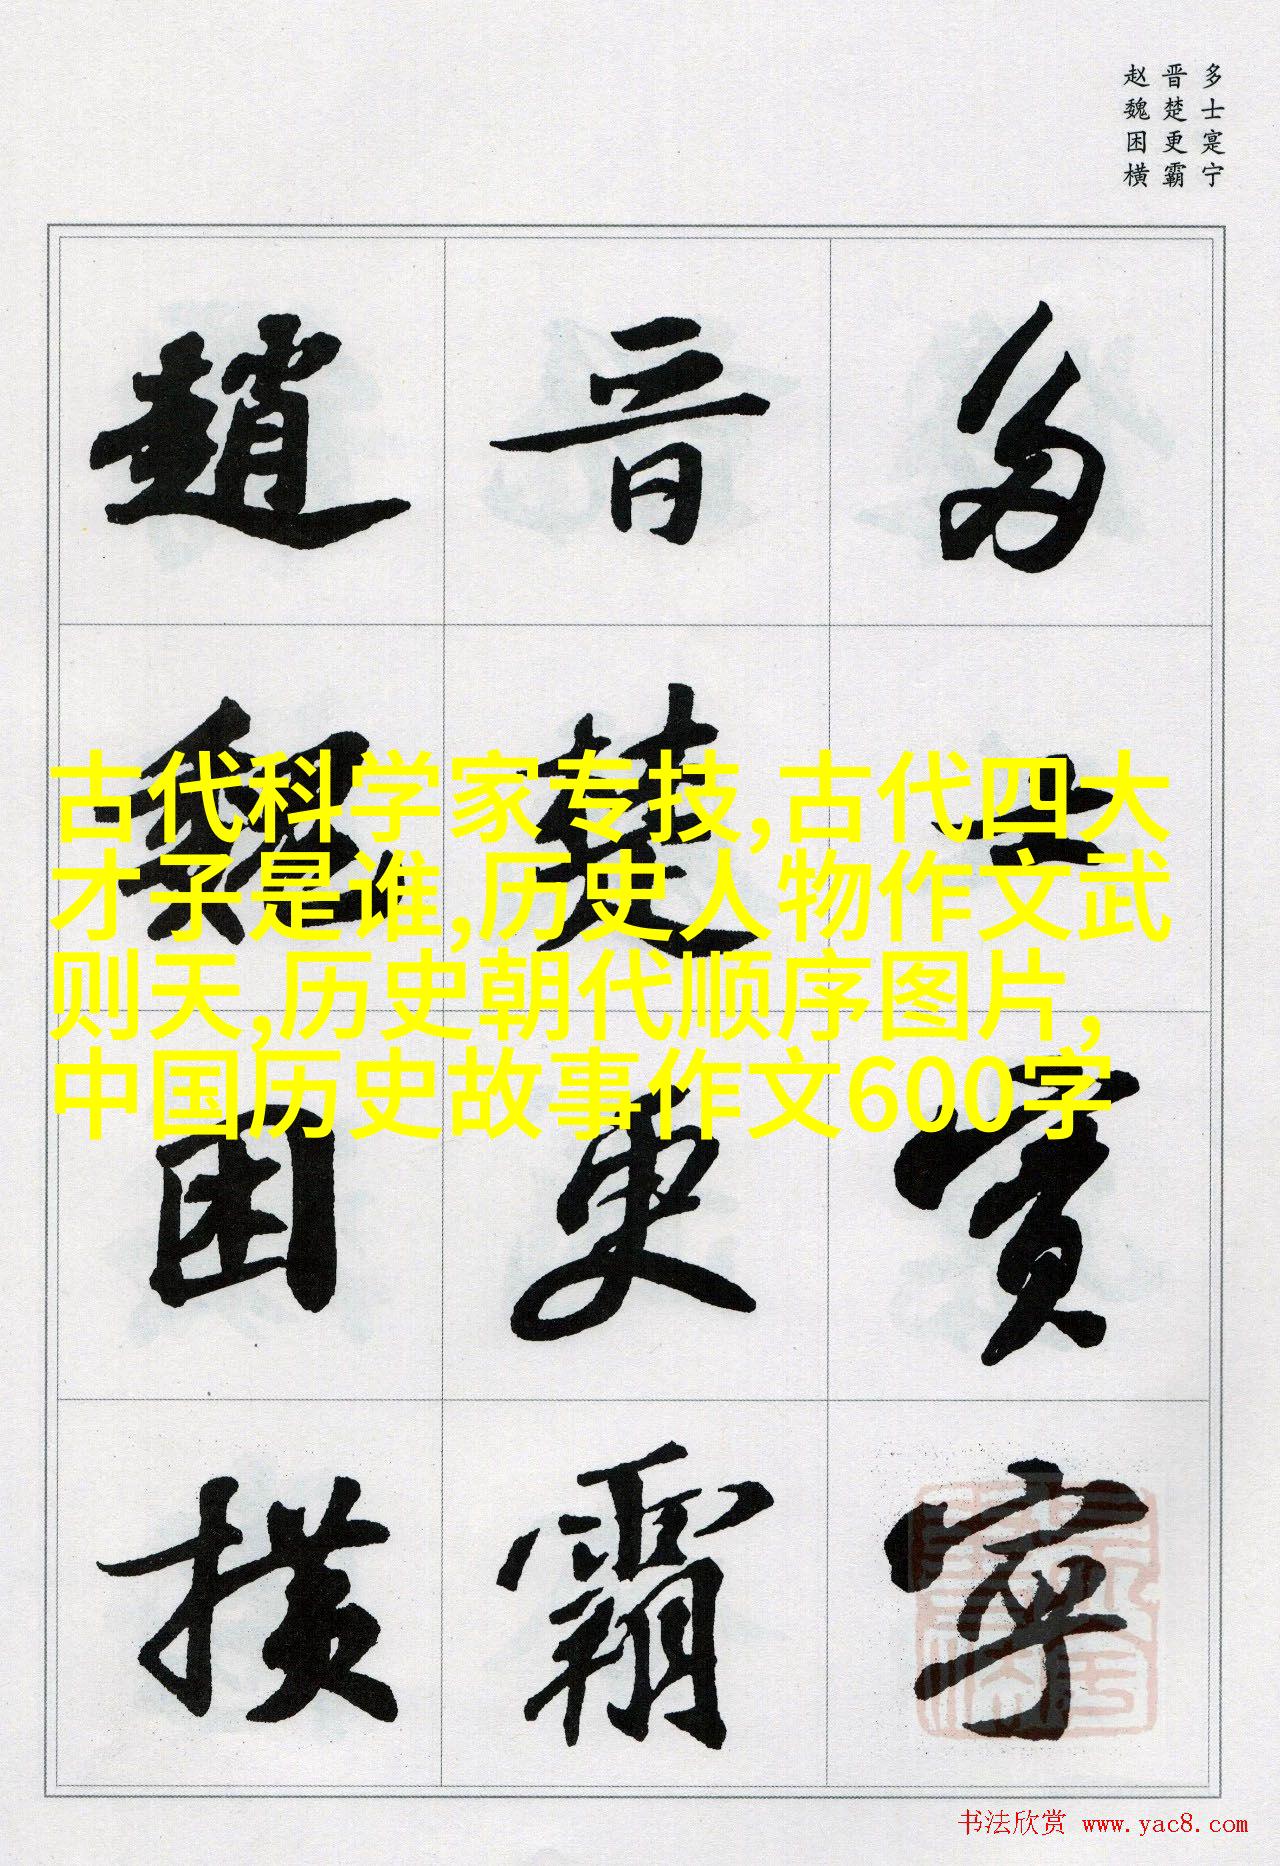 多士寔宁
晋楚更霸
赵魏困横
多士寔寧
晉楚更霸
趙魏困橫
古代科学家专技,古代四大
才子是谁,历史人物作文武
则天,历史朝代顺序图片,
中国历史故事作文600字
书法欣赏 www.yac8.com